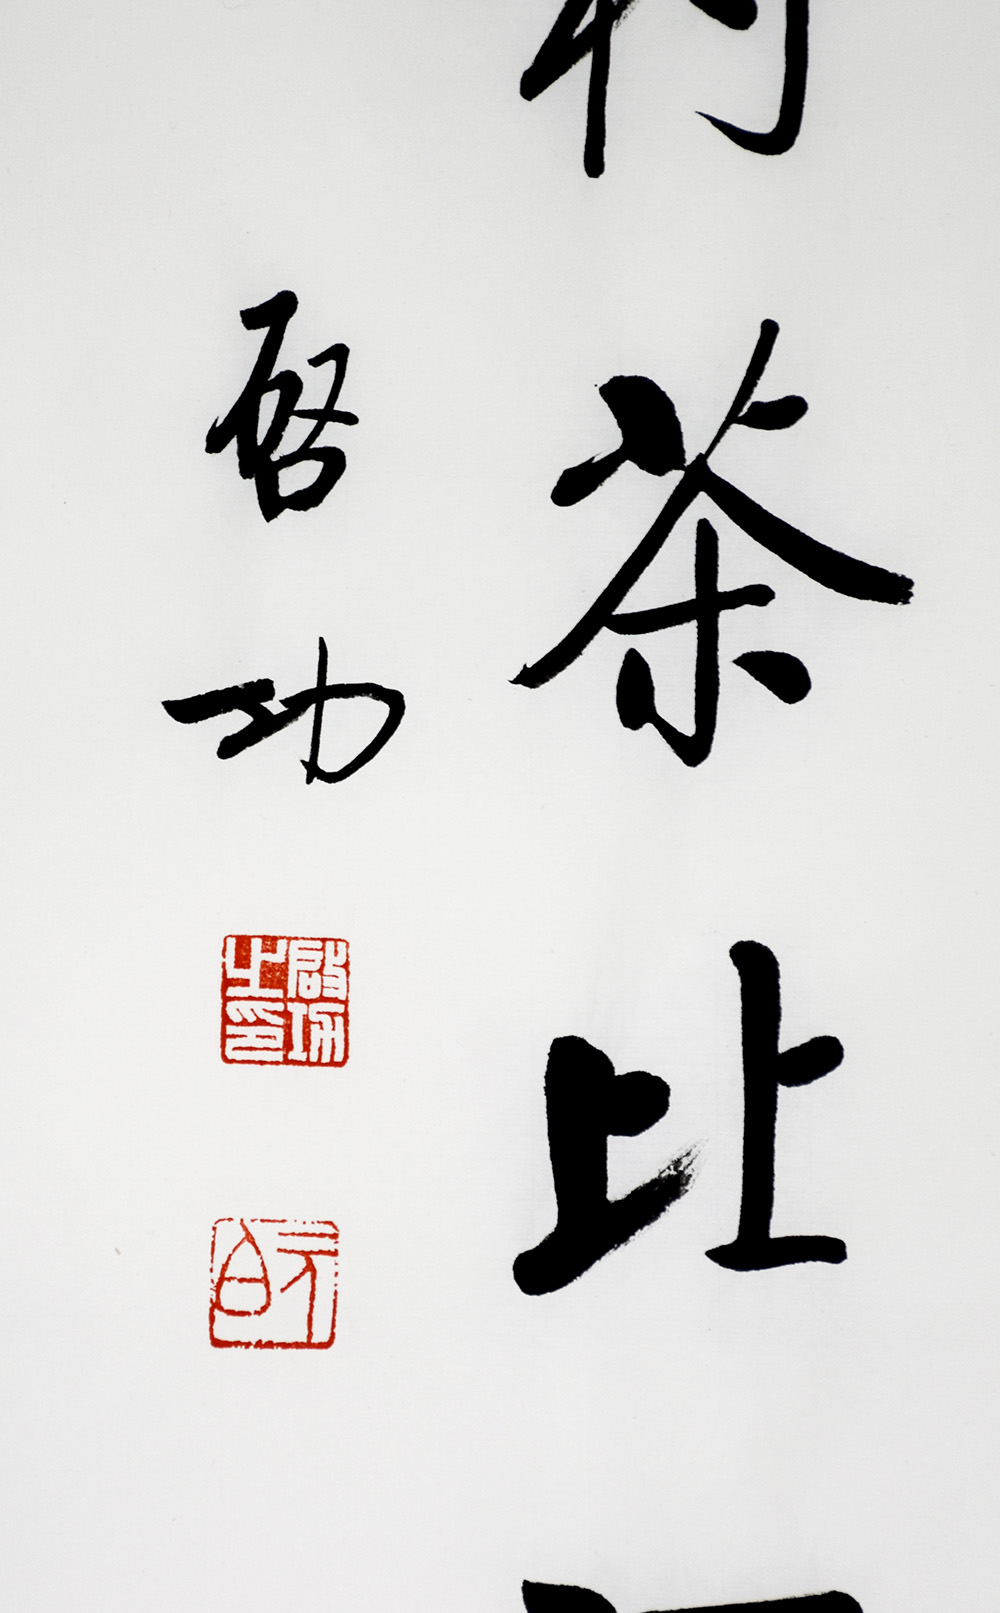 茶比
啓功
啓功之印
元白